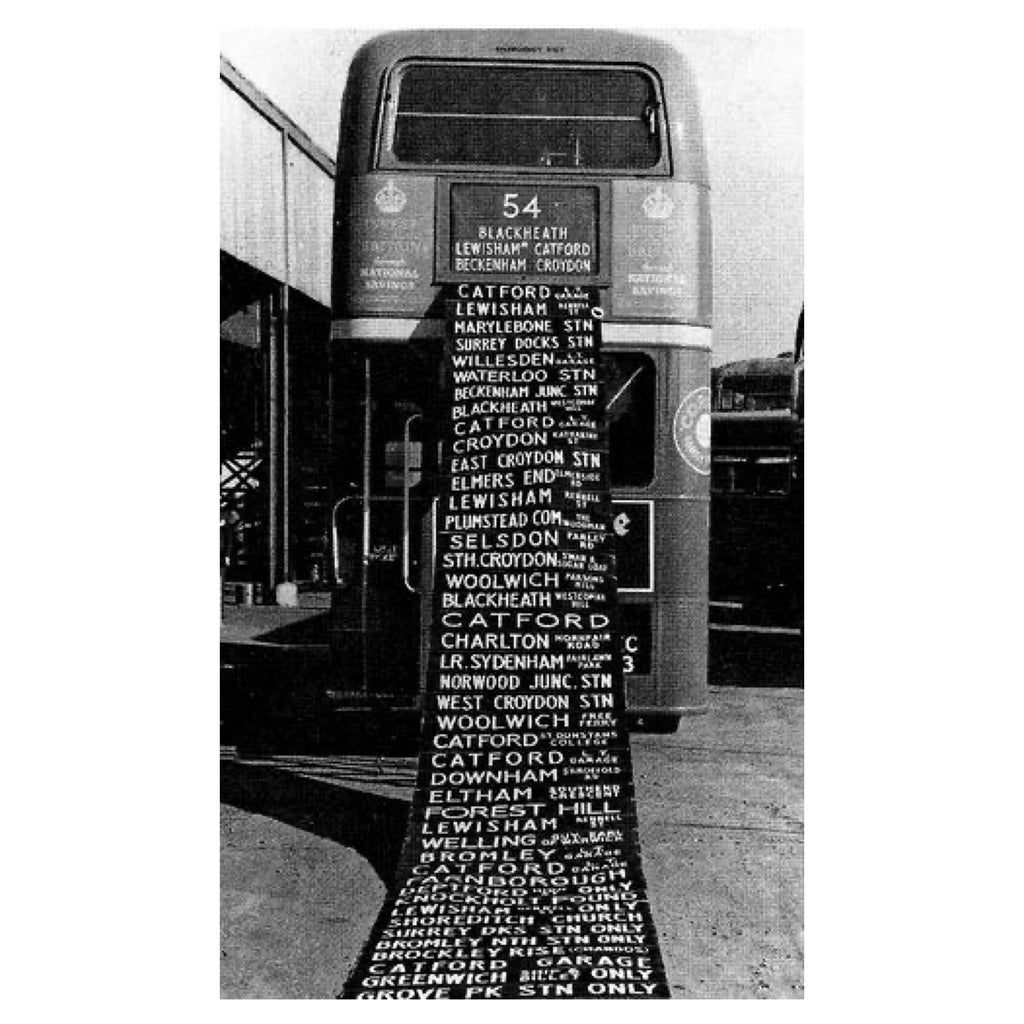 EMERGENCY EXIT
54
BLACKHEATH
LEWISHAM CATFORD
BECKENHAM CROYDON
NATIONAL
SAVINGS
through
NATIONAL
SAVINGS
CATFORD L.T. GARAGE
LEWISHAM RENNELL ST
MARYLEBONE STN
SURREY DOCKS STN
WILLESDEN L.T. GARAGE
WATERLOO STN
BECKENHAM JUNC STN
BLACKHEATH WESTCOMBE HILL
CATFORD L.T. GARAGE
CROYDON KATHARINE ST
EAST CROYDON STN
ELMERS END ELMERSIDE RD
LEWISHAM RENNELL ST
PLUMSTEAD COM. THE WOODMAN
SELSDON FARLEY RD
STH. CROYDON SWAN & SUGAR LOAF
WOOLWICH PARSONS HILL
BLACKHEATH WESTCOMBE HILL
CATFORD
CHARLTON HORNFAIR ROAD
LR. SYDENHAM FAIRLAWN PARK
NORWOOD JUNC. STN
WEST CROYDON STN
WOOLWICH FREE FERRY
CATFORD ST DUNSTANS COLLEGE
CATFORD L.T. GARAGE
DOWNHAM
ELTHAM SOUTHEND CRESCENT
FOREST HILL
LEWISHAM RENNELL ST
WELLING
BROMLEY L.T. GARAGE
CATFORD L.T. GARAGE
FARNBOROUGH
DEPTFORD ONLY
KNOCKHOLT POUND
LEWISHAM ONLY
SHOREDITCH CHURCH
SURREY DKS STN ONLY
BROMLEY NTH STN ONLY
BROCKLEY RISE (CHANDOS)
CATFORD GARAGE
GREENWICH ONLY
GROVE PK STN ONLY